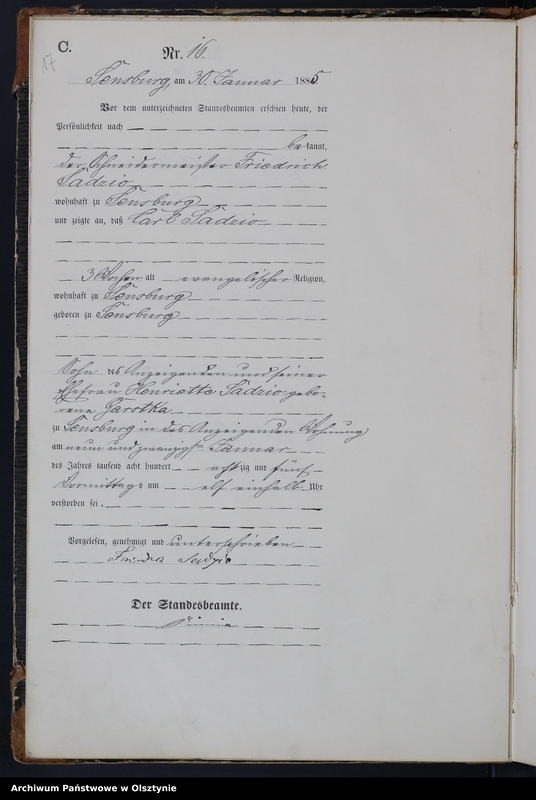 C.
17
Nr. 16.
Sensburg, am 30. Januar 1885.
Vor dem unterzeichneten Standesbeamten erschien heute, der
Persönlichkeit nach
bekannt,
der Schneidermeister Friedrich
Sadzio
wohnhaft zu Sensburg
und zeigte an, daß Carl Sadzio
3 Wochen alt evangelischer Religion,
wohnhaft zu Sensburg
geboren zu Sensburg
Sohn des Anzeigenden und seiner
Ehefrau Henriette Sadzio gebo-
rene Garstka
zu Sensburg in des Anzeigenden Wohnung
am neun und zwanzigsten Januar
des Jahres tausend acht hundert achtzig und fünf
Vormittags um elf einhalb Uhr
verstorben sei.
Vorgelesen, genehmigt und unterschrieben
Friedrich Sadzio
Der Standesbeamte.
Archiwum Państwowe w Olsztynie